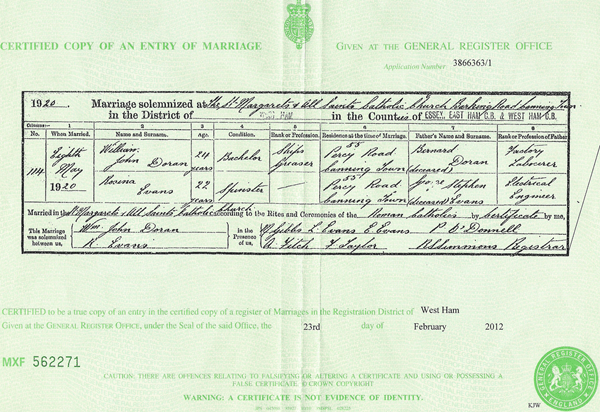 CERTIFIED COPY OF AN ENTRY OF MARRIAGE
GIVEN AT THE GENERAL REGISTER OFFICE
Application Number 3866363/1
1920. Marriage solemnized at The St Margarets & All Saints Catholic Church Barking Road Canning Town
in the District of WEST HAM in the Counties of ESSEX, EAST HAM C.B. & WEST HAM C.B.
Columns:— 1 2 3 4 5 6 7 8
No. When Married. Name and Surname. Age. Condition. Rank or Profession. Residence at the time of Marriage. Father's Name and Surname. Rank or Profession of Father.
114 Eighth May 1920 William John Doran 24 years Bachelor Ships Greaser 55 Percy Road Canning Town Bernard Doran (deceased) Factory Labourer
Rosina Evans 22 years Spinster — 55 Percy Road Canning Town George Stephen Evans (deceased) Electrical Engineer
Married in the St Margarets & All Saints Catholic Church according to the Rites and Ceremonies of the Roman Catholics by Certificate by me,
This Marriage was solemnized between us, Wm. John Doran R. Evans in the Presence of us, M Gibbs L. Evans E. Evans A. Fitch F Taylor P. O'Donnell Simmons Registrar
CERTIFIED to be a true copy of an entry in the certified copy of a register of Marriages in the Registration District of West Ham
Given at the GENERAL REGISTER OFFICE, under the Seal of the said Office, the 23rd day of February 2012
MXF 562271
CAUTION: THERE ARE OFFENCES RELATING TO FALSIFYING OR ALTERING A CERTIFICATE AND USING OR POSSESSING A
FALSE CERTIFICATE. © CROWN COPYRIGHT
WARNING: A CERTIFICATE IS NOT EVIDENCE OF IDENTITY.
GENERAL REGISTER OFFICE ENGLAND
KJW